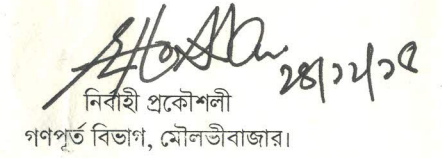 ২৪/১২/১৫
নির্বাহী প্রকৌশলী
গণপূর্ত বিভাগ, মৌলভীবাজার।